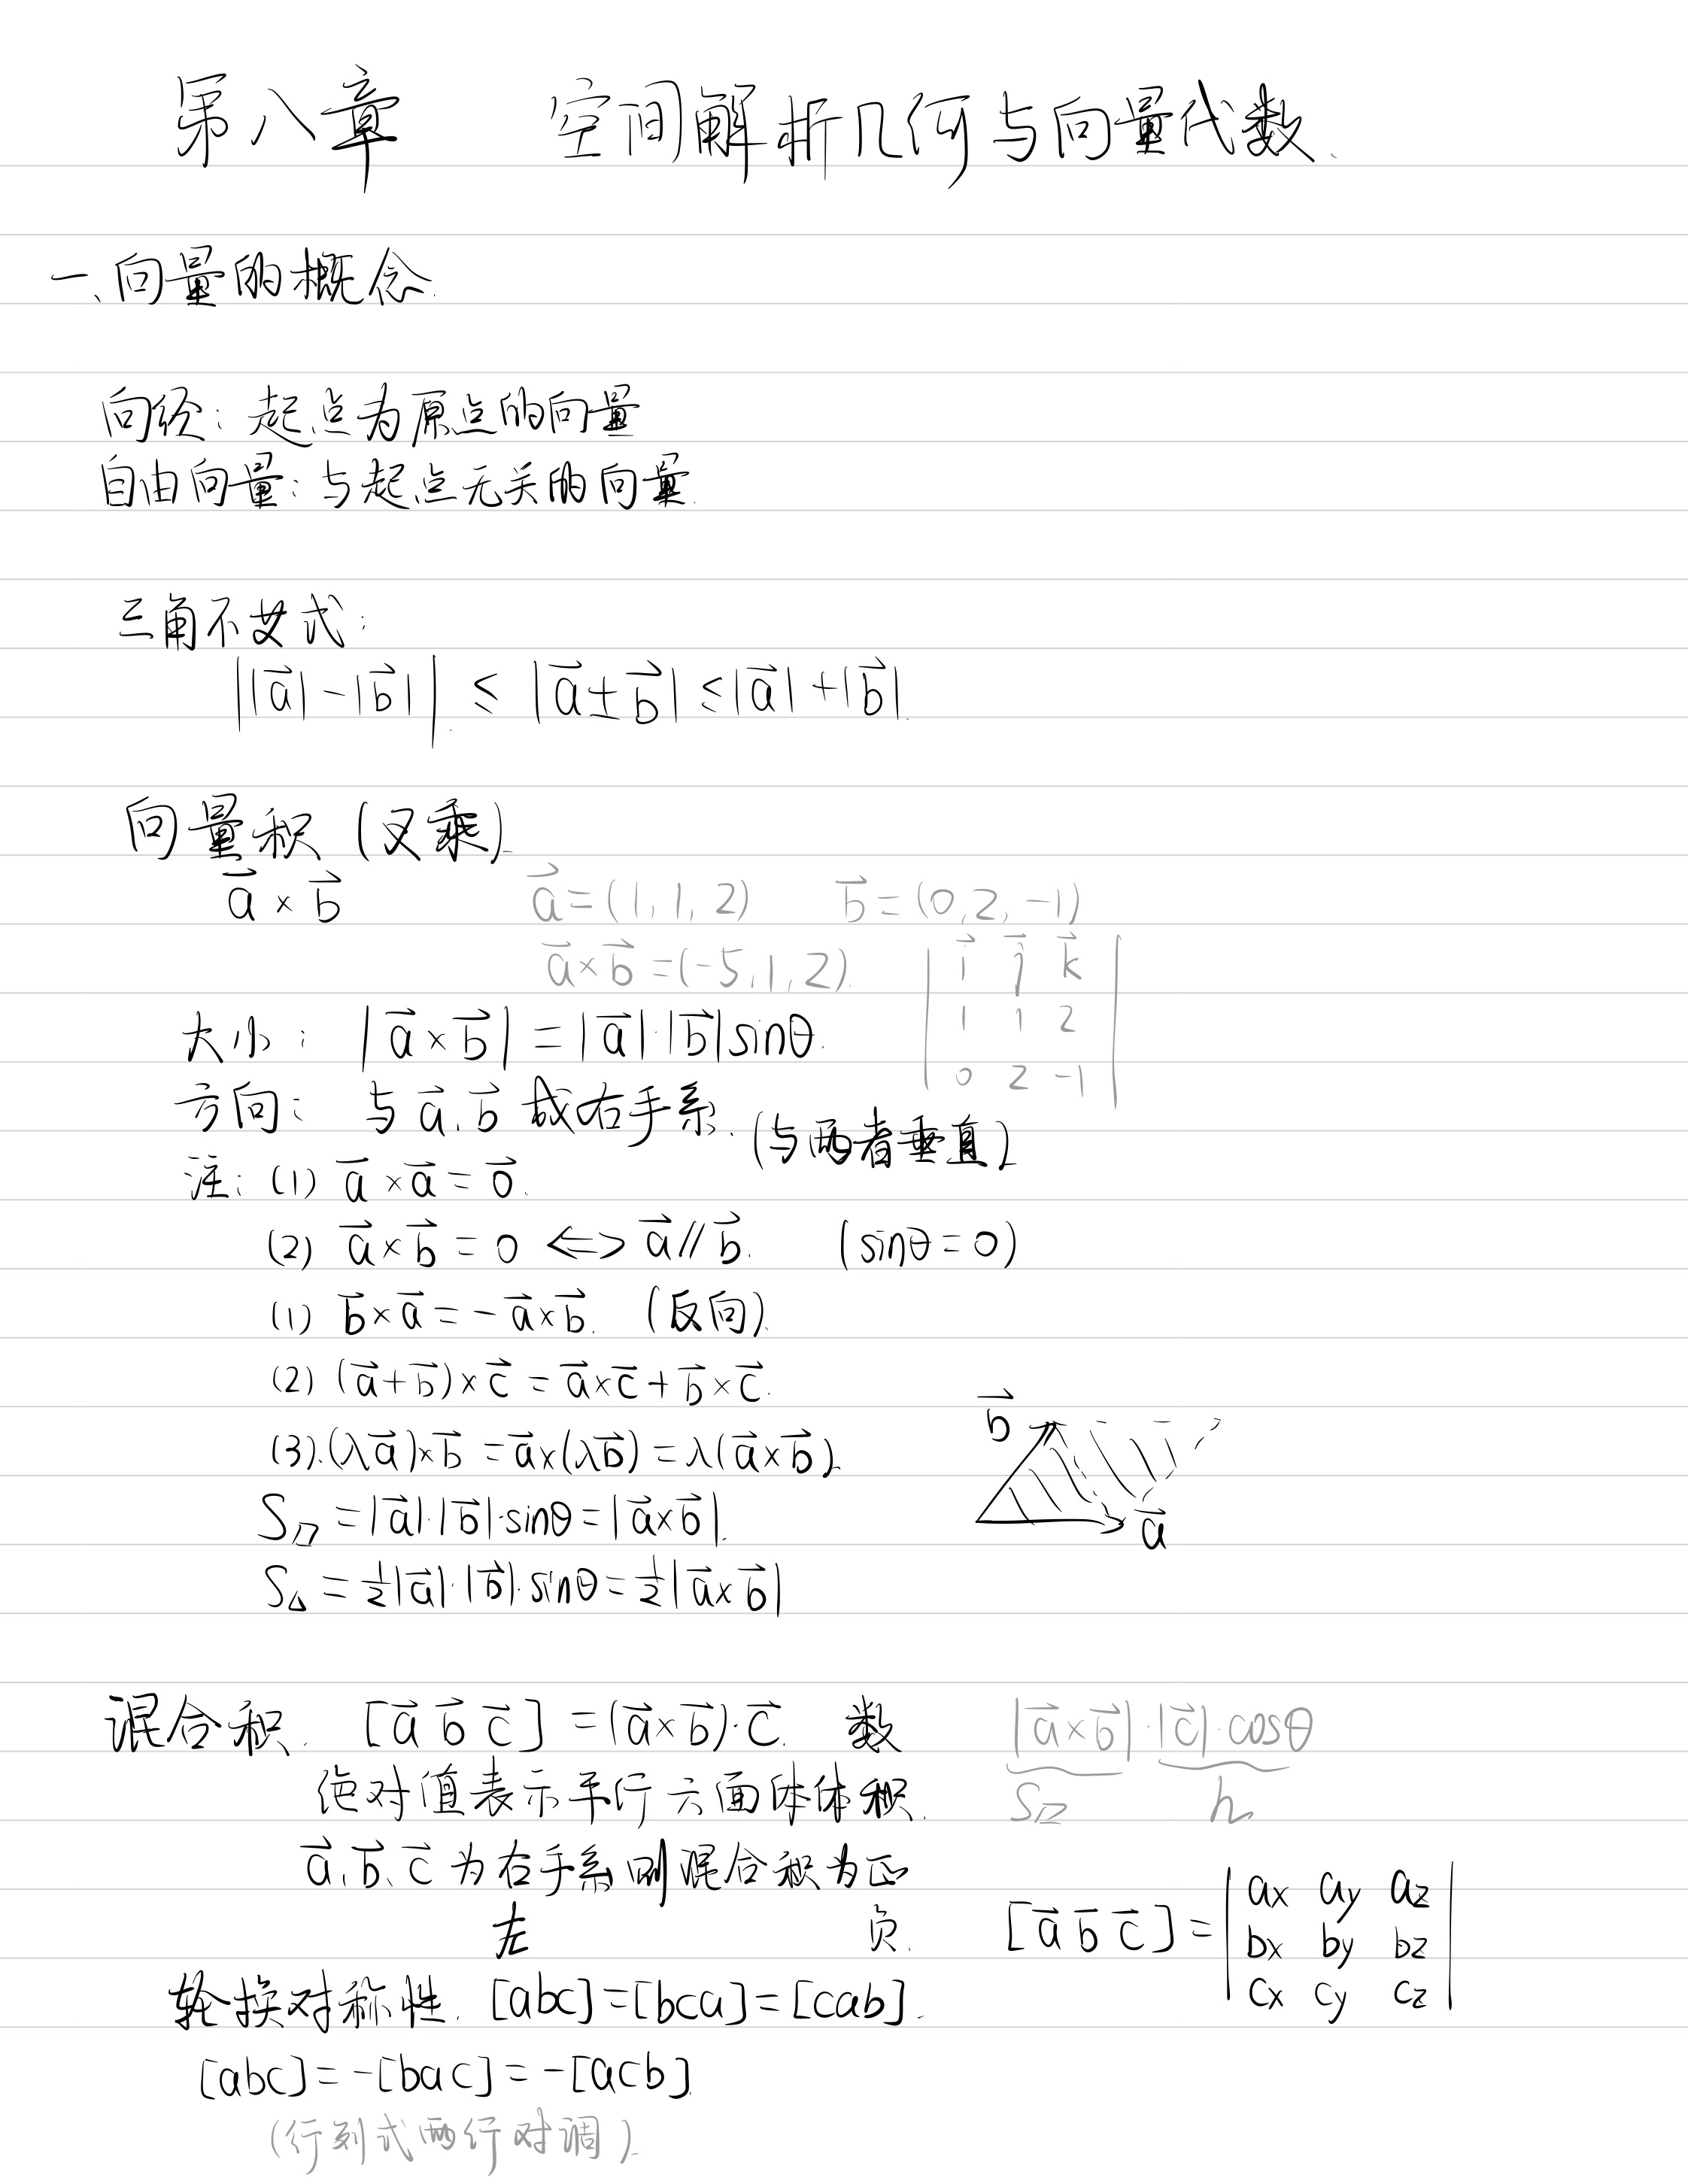 第八章 空间解析几何与向量代数.
一、向量的概念.
向径: 起点为原点的向量
自由向量: 与起点无关的向量.
三角不等式:
||a⃗|-|b⃗|| ≤ |a⃗±b⃗| ≤ |a⃗|+|b⃗|.
向量积 (叉乘).
a⃗ × b⃗
a⃗=(1,1,2) b⃗=(0,2,-1)
a⃗×b⃗=(-5,1,2).
| i⃗ j⃗ k⃗ |
| 1 1 2 |
| 0 2 -1 |
大小: |a⃗×b⃗| = |a⃗|·|b⃗|sinθ.
方向: 与a⃗、b⃗ 成右手系. (与两者垂直)
注: (1) a⃗×a⃗=0⃗.
(2) a⃗×b⃗=0 <=> a⃗//b⃗. (sinθ=0)
(1) b⃗×a⃗=-a⃗×b⃗. (反向).
(2) (a⃗+b⃗)×c⃗=a⃗×c⃗+b⃗×c⃗.
(3).(λa⃗)×b⃗=a⃗×(λb⃗)=λ(a⃗×b⃗).
b⃗
a⃗
S▱=|a⃗|·|b⃗|·sinθ=|a⃗×b⃗|.
S△=½|a⃗|·|b⃗|·sinθ=½|a⃗×b⃗|
混合积. [a⃗ b⃗ c⃗]=(a⃗×b⃗)·c⃗. 数
|a⃗×b⃗|·|c⃗|·cosθ
S▱ h
绝对值表示平行六面体体积.
a⃗、b⃗、c⃗为右手系则混合积为正
左 负.
[a⃗ b⃗ c⃗]=
| ax ay az |
| bx by bz |
| cx cy cz |
轮换对称性. [abc]=[bca]=[cab].
[abc]=-[bac]=-[acb].
(行列式两行对调).